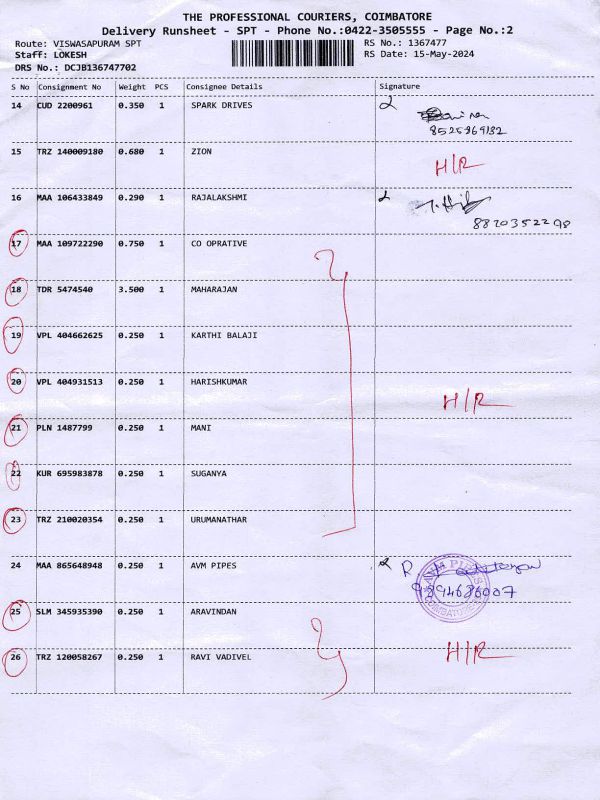 THE PROFESSIONAL COURIERS, COIMBATORE
Delivery Runsheet - SPT - Phone No.:0422-3505555 - Page No.:2
Route: VISWASAPURAM SPT RS No.: 1367477
Staff: LOKESH RS Date: 15-May-2024
DRS No.: DCJB136747702
S No Consignment No Weight PCS Consignee Details Signature
14 CUD 2200961 0.350 1 SPARK DRIVES
8525969132
15 TRZ 140009180 0.680 1 ZION H/R
16 MAA 106433849 0.290 1 RAJALAKSHMI
8870352298
17 MAA 109722290 0.750 1 CO OPRATIVE
18 TDR 5474540 3.500 1 MAHARAJAN
19 VPL 404662625 0.250 1 KARTHI BALAJI
20 VPL 404931513 0.250 1 HARISHKUMAR H/R
21 PLN 1487799 0.250 1 MANI
22 KUR 695983878 0.250 1 SUGANYA
23 TRZ 210020354 0.250 1 URUMANATHAR
24 MAA 865648948 0.250 1 AVM PIPES
AVM PIPES
9894686007
25 SLM 345935390 0.250 1 ARAVINDAN
26 TRZ 120058267 0.250 1 RAVI VADIVEL H/R